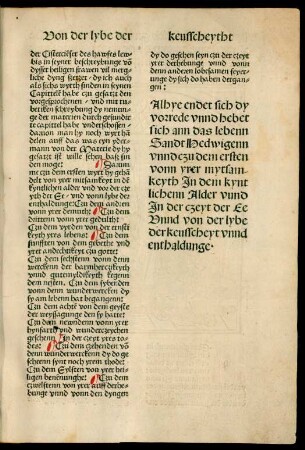 Von der lybe der
keusscheytht
der Cistercieser des hawses lew-
bis in seyner beschreybunge võ
dysser heiligen frawen vil merg-
liche dyng setzet dy ich auch
alhy wil als sichs wyrth den sey-
nen Capitteln bas czu gesatzt den
vorgesprochen vnd mit
ner der materien durch gesundert
te capittel habe vnderschossen
daraus man hy noch wyrth
delen auff das wen ymandt
von den worten der Materie dy hy
gesatzt ist wille sehen das sin
den moge Darum-
me czu dem ersten wellen wir be-
dencken yr mytsamkeyth in dem
kyndlichen alder vnd vor der czey-
yth der Ee vnd vonn lybe der
enthaldunge Czu dem andern
vonn yrer demutt Czu dem
dritten vonn yrer gedullth
Czu dem vyrden von der enstzi
keyth yres lebens Czu dem
sunfften von dem gebethe vnd
yrer andechtikeyth czu gotte
Czu dem sechsten vonn denn
wercken der barmherczikeyth
vnnd guttikeyth dy sy den elen-
den beweiset Czu dem sybenden
denn von den wunderwercken dy
sy am leben hat begangenn
Czu dem achten von dem geyste
der weyssagunge den sy hatte
Czu dem newnden vonn yrer
hynfartt vnd wunderczeychen
geschenn in der czeyt yres to-
des Czu dem czehenden võ
denn wunderwercken dy do ge-
schehenn synt noch yrem thode
Czu dem Eylften vonn yrer hei-
ligen heuenunghe Czu dem
czwelften von yrer auff derhe-
bunge vnnd vonn den dyngen
dy do geschen seyn czu der czeyt
yrer derhebunge vnnd vonn
denn anderen lobesamen seyer-
unge dy sich do haben dergan-
gen
Alhye endet sich dy
vorrede vnnd hebet
sich ann das lebenn
Sandt Hedwigenn
vnnde czu dem ersten
vonn yrer mytsam-
keyth In dem kynt
lichenn Alder vnnd
In der czeyt der Ee
Vnnd von der lybe
der keusscheyt vnnd
enthaldunge